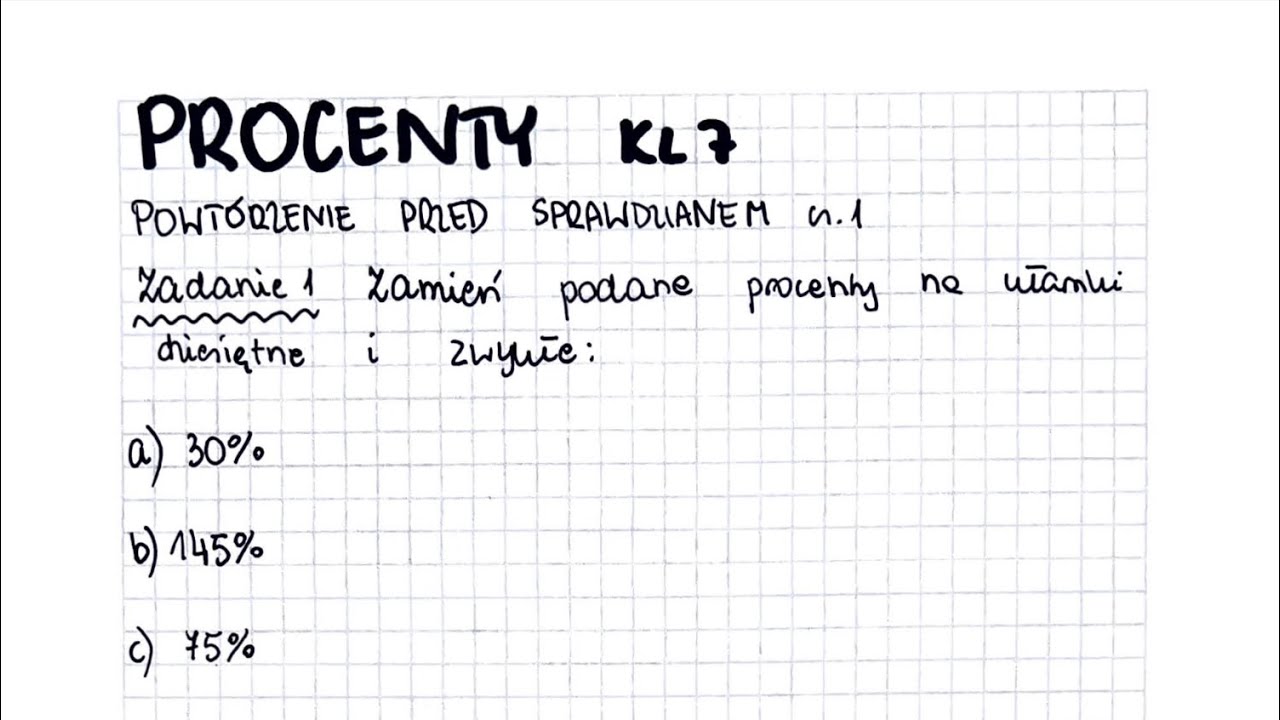 PROCENTY KL 7
POWTÓRZENIE PRZED SPRAWDZIANEM cz. 1
Zadanie 1 Zamień podane procenty na ułamki
dziesiętne i zwykłe:
a) 30%
b) 145%
c) 75%